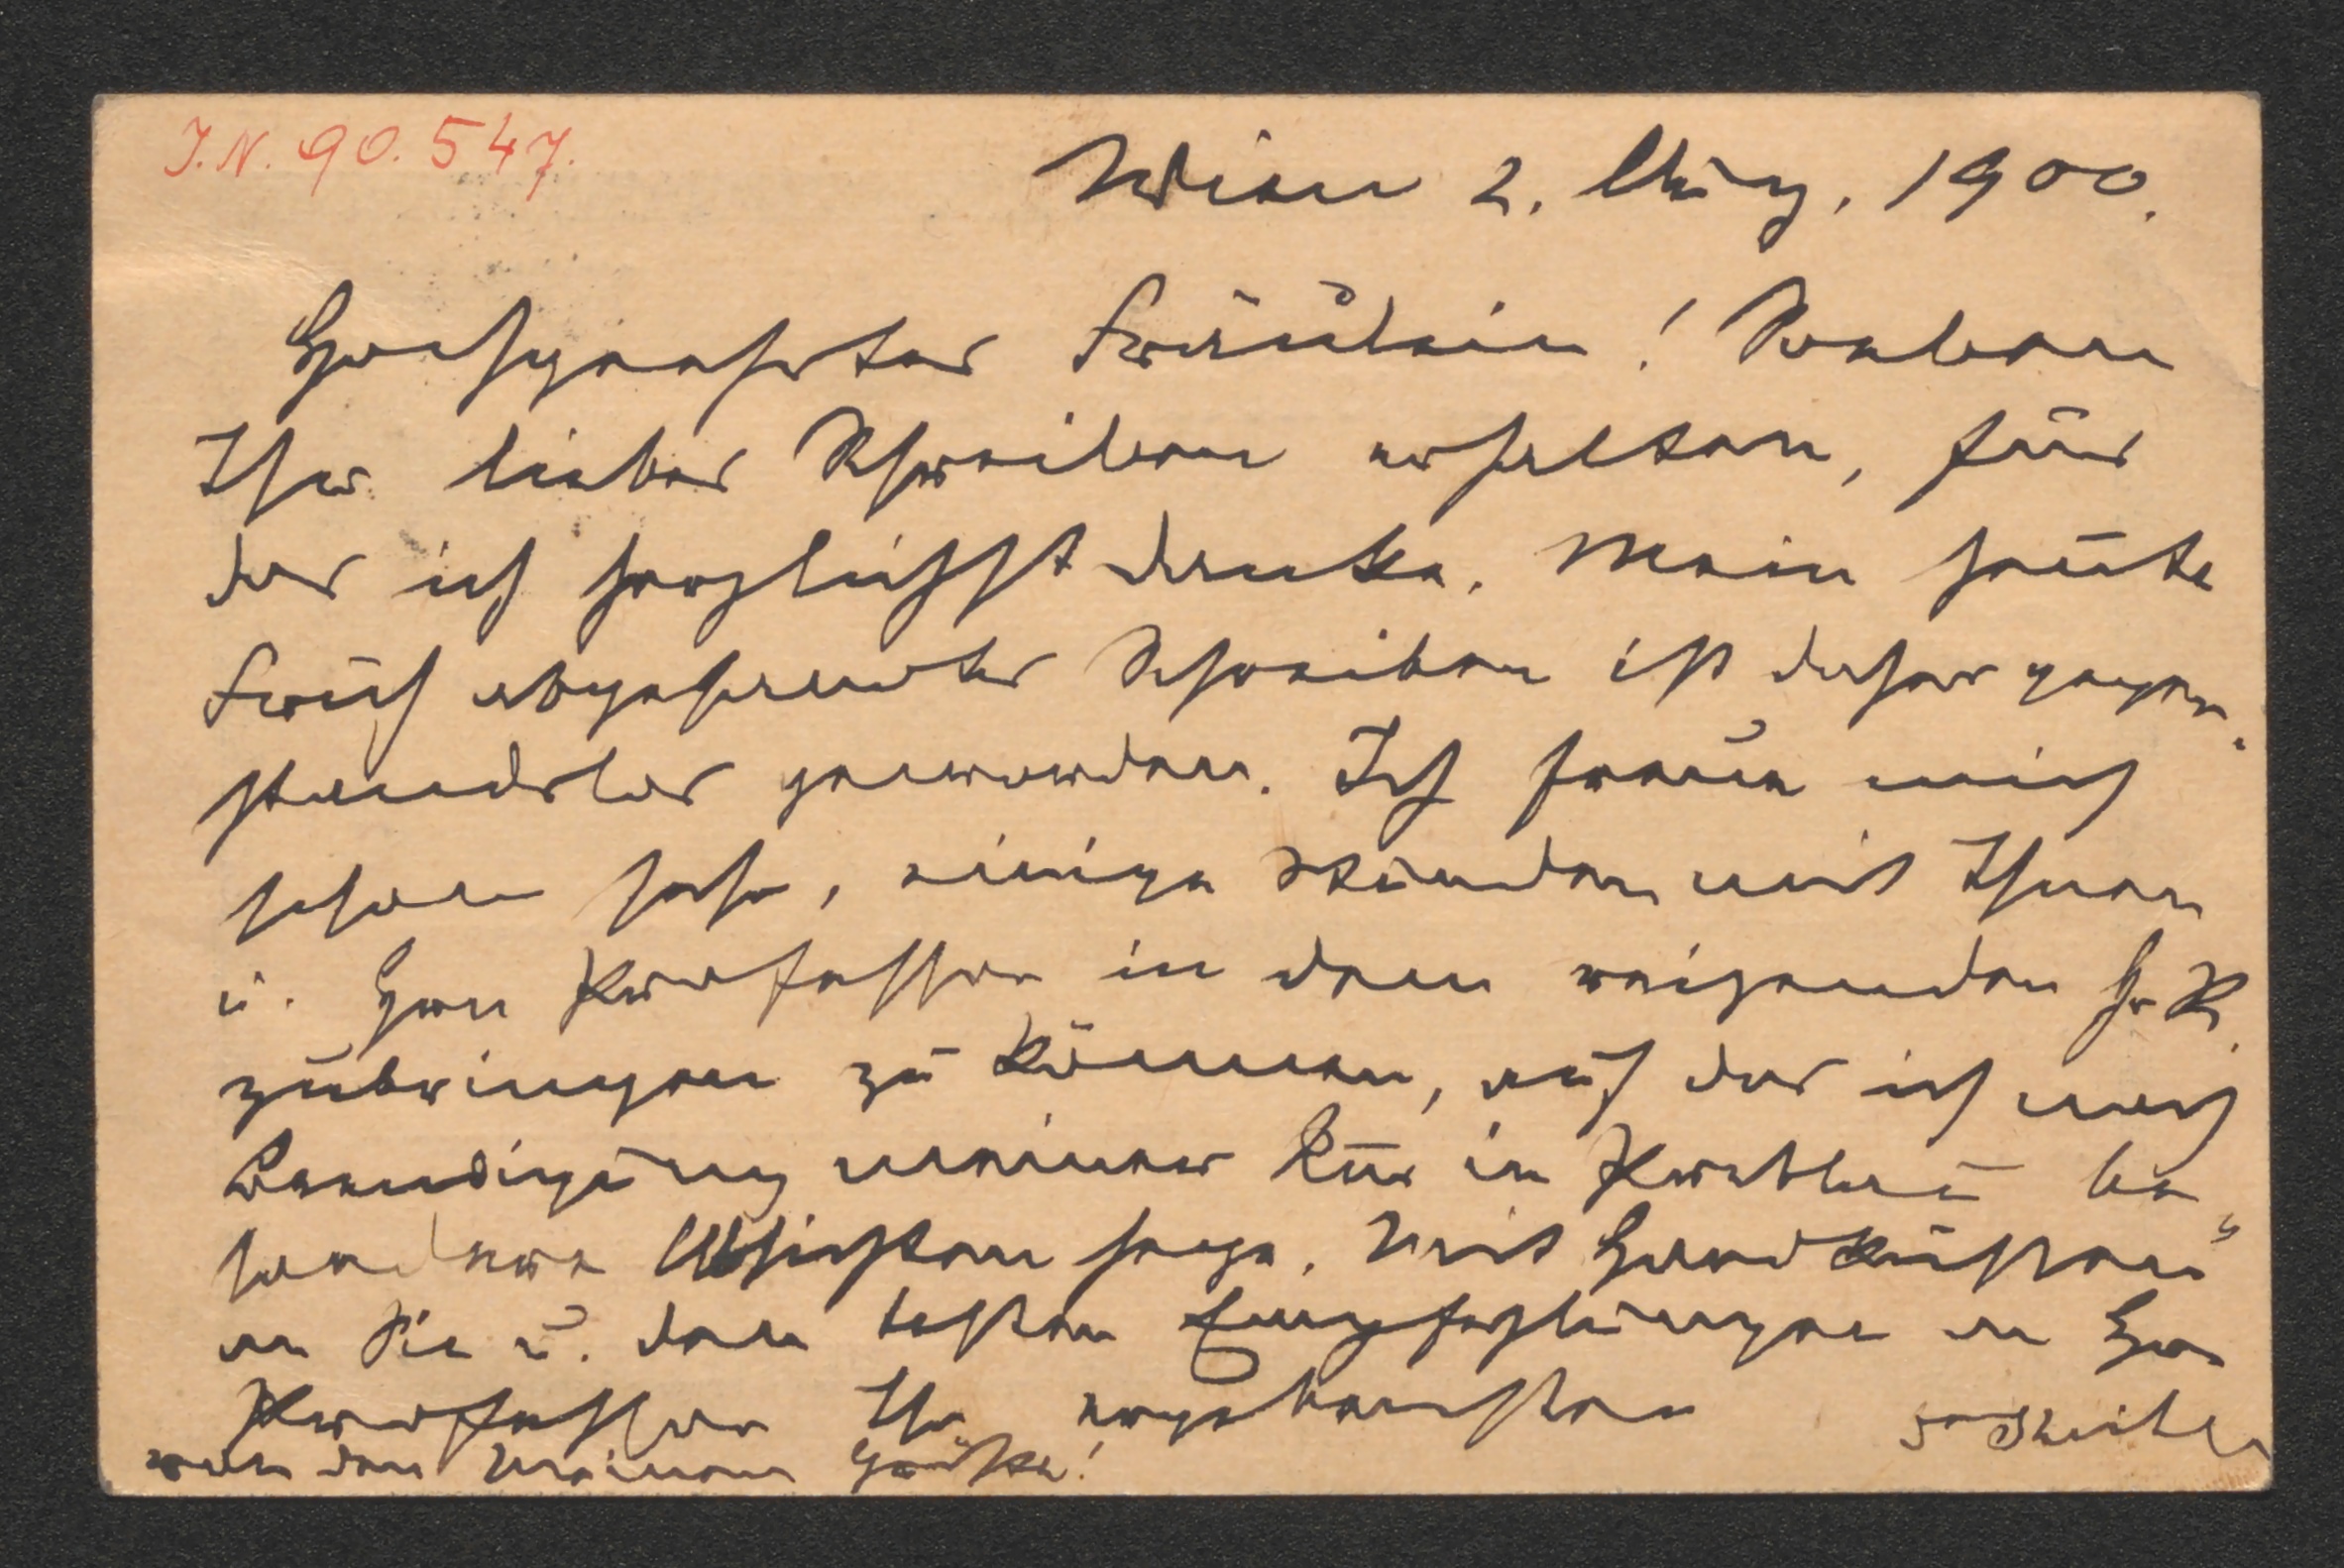 I.N. 90.547.
Wien 2. Aug. 1900.
Hochgeehrtes Fräulein! Soeben
Ihr liebes Schreiben erhalten, für
das ich herzlichst danke. Mein heute
Früh abgesandtes Schreiben ist daher gegen-
standslos geworden. Ich freue mich
schon sehr, einige Stunden mit Ihnen
u. Herrn Professor in dem reizenden
zubringen zu können, auf das ich nach
Beendigung meiner Kur in be-
sondere Absichten hege. Mit Handküssen
an Sie u. den besten Empfehlungen an Hrn
Professor Ihr ergebenster
von den Meinen Grüße!